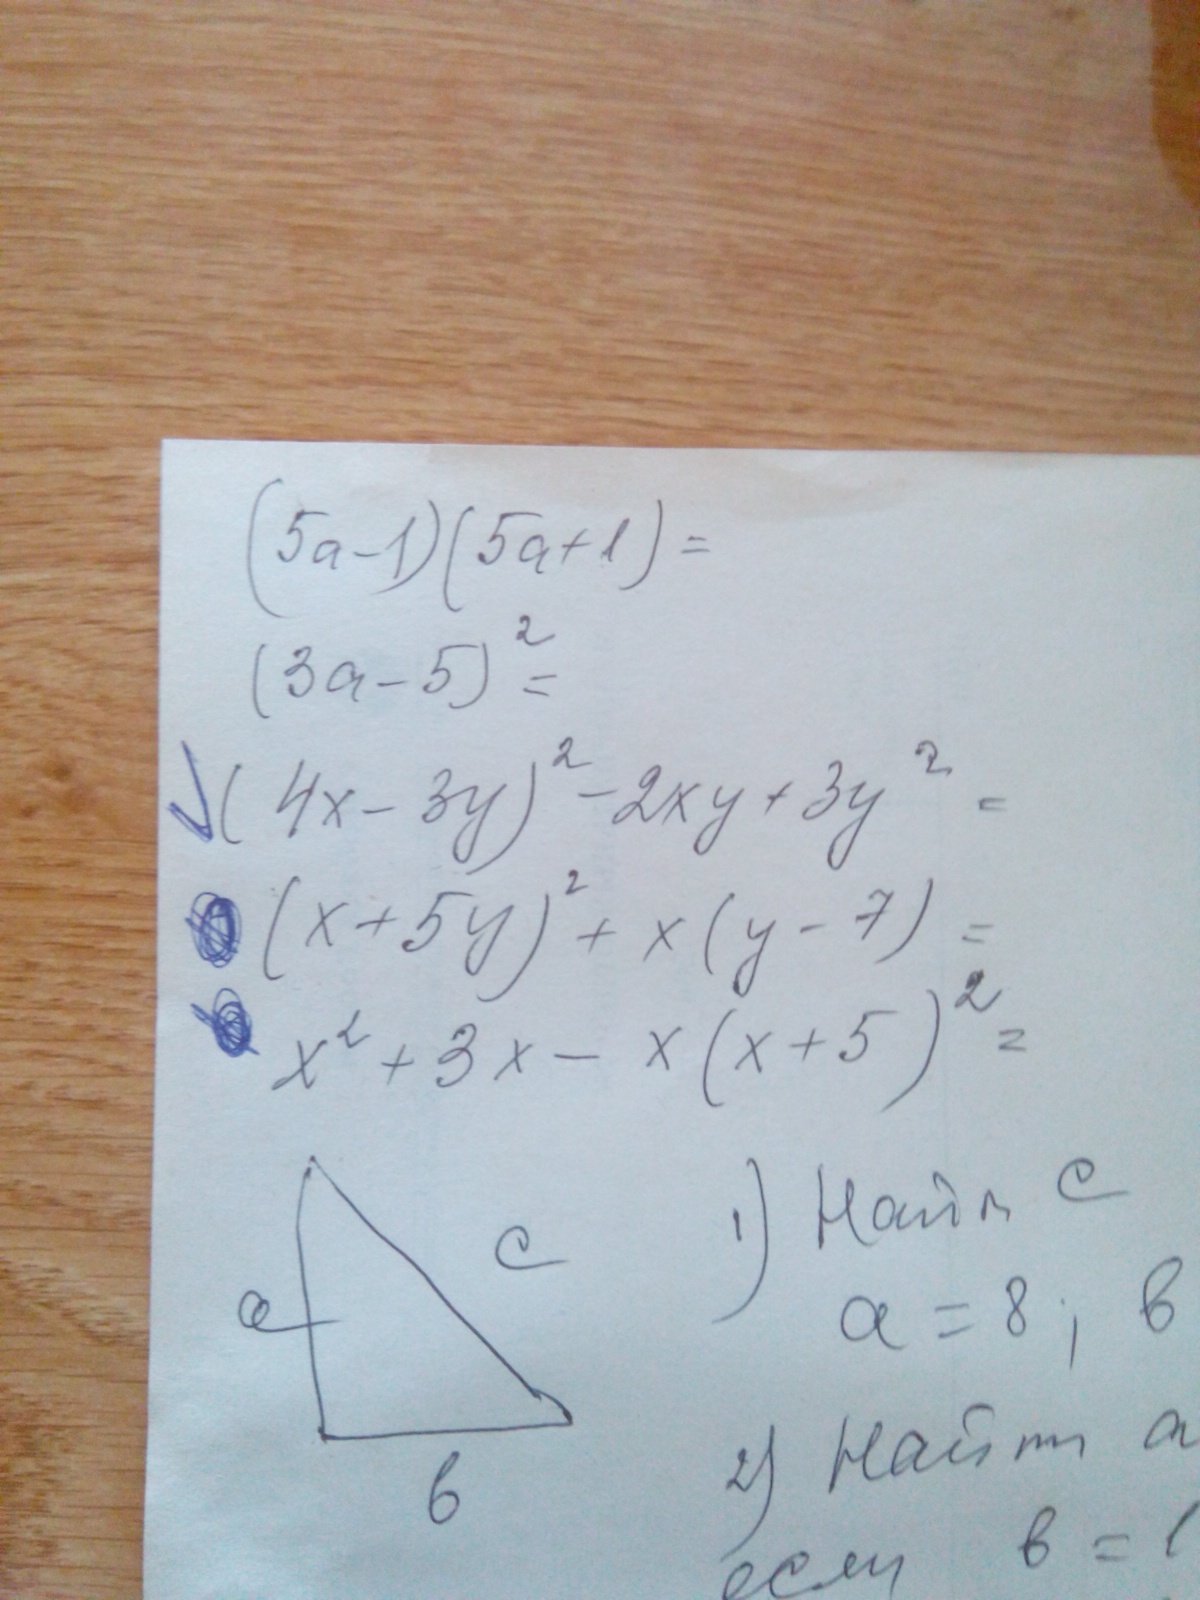 (5a-1)(5a+1)=
(3a-5)²=
(4x-3y)²-2xy+3y²=
(x+5y)²+x(y-7)=
x²+3x-x(x+5)²=
a
c
в
1) Найти c
a=8; в
2) Найти a
если в=1